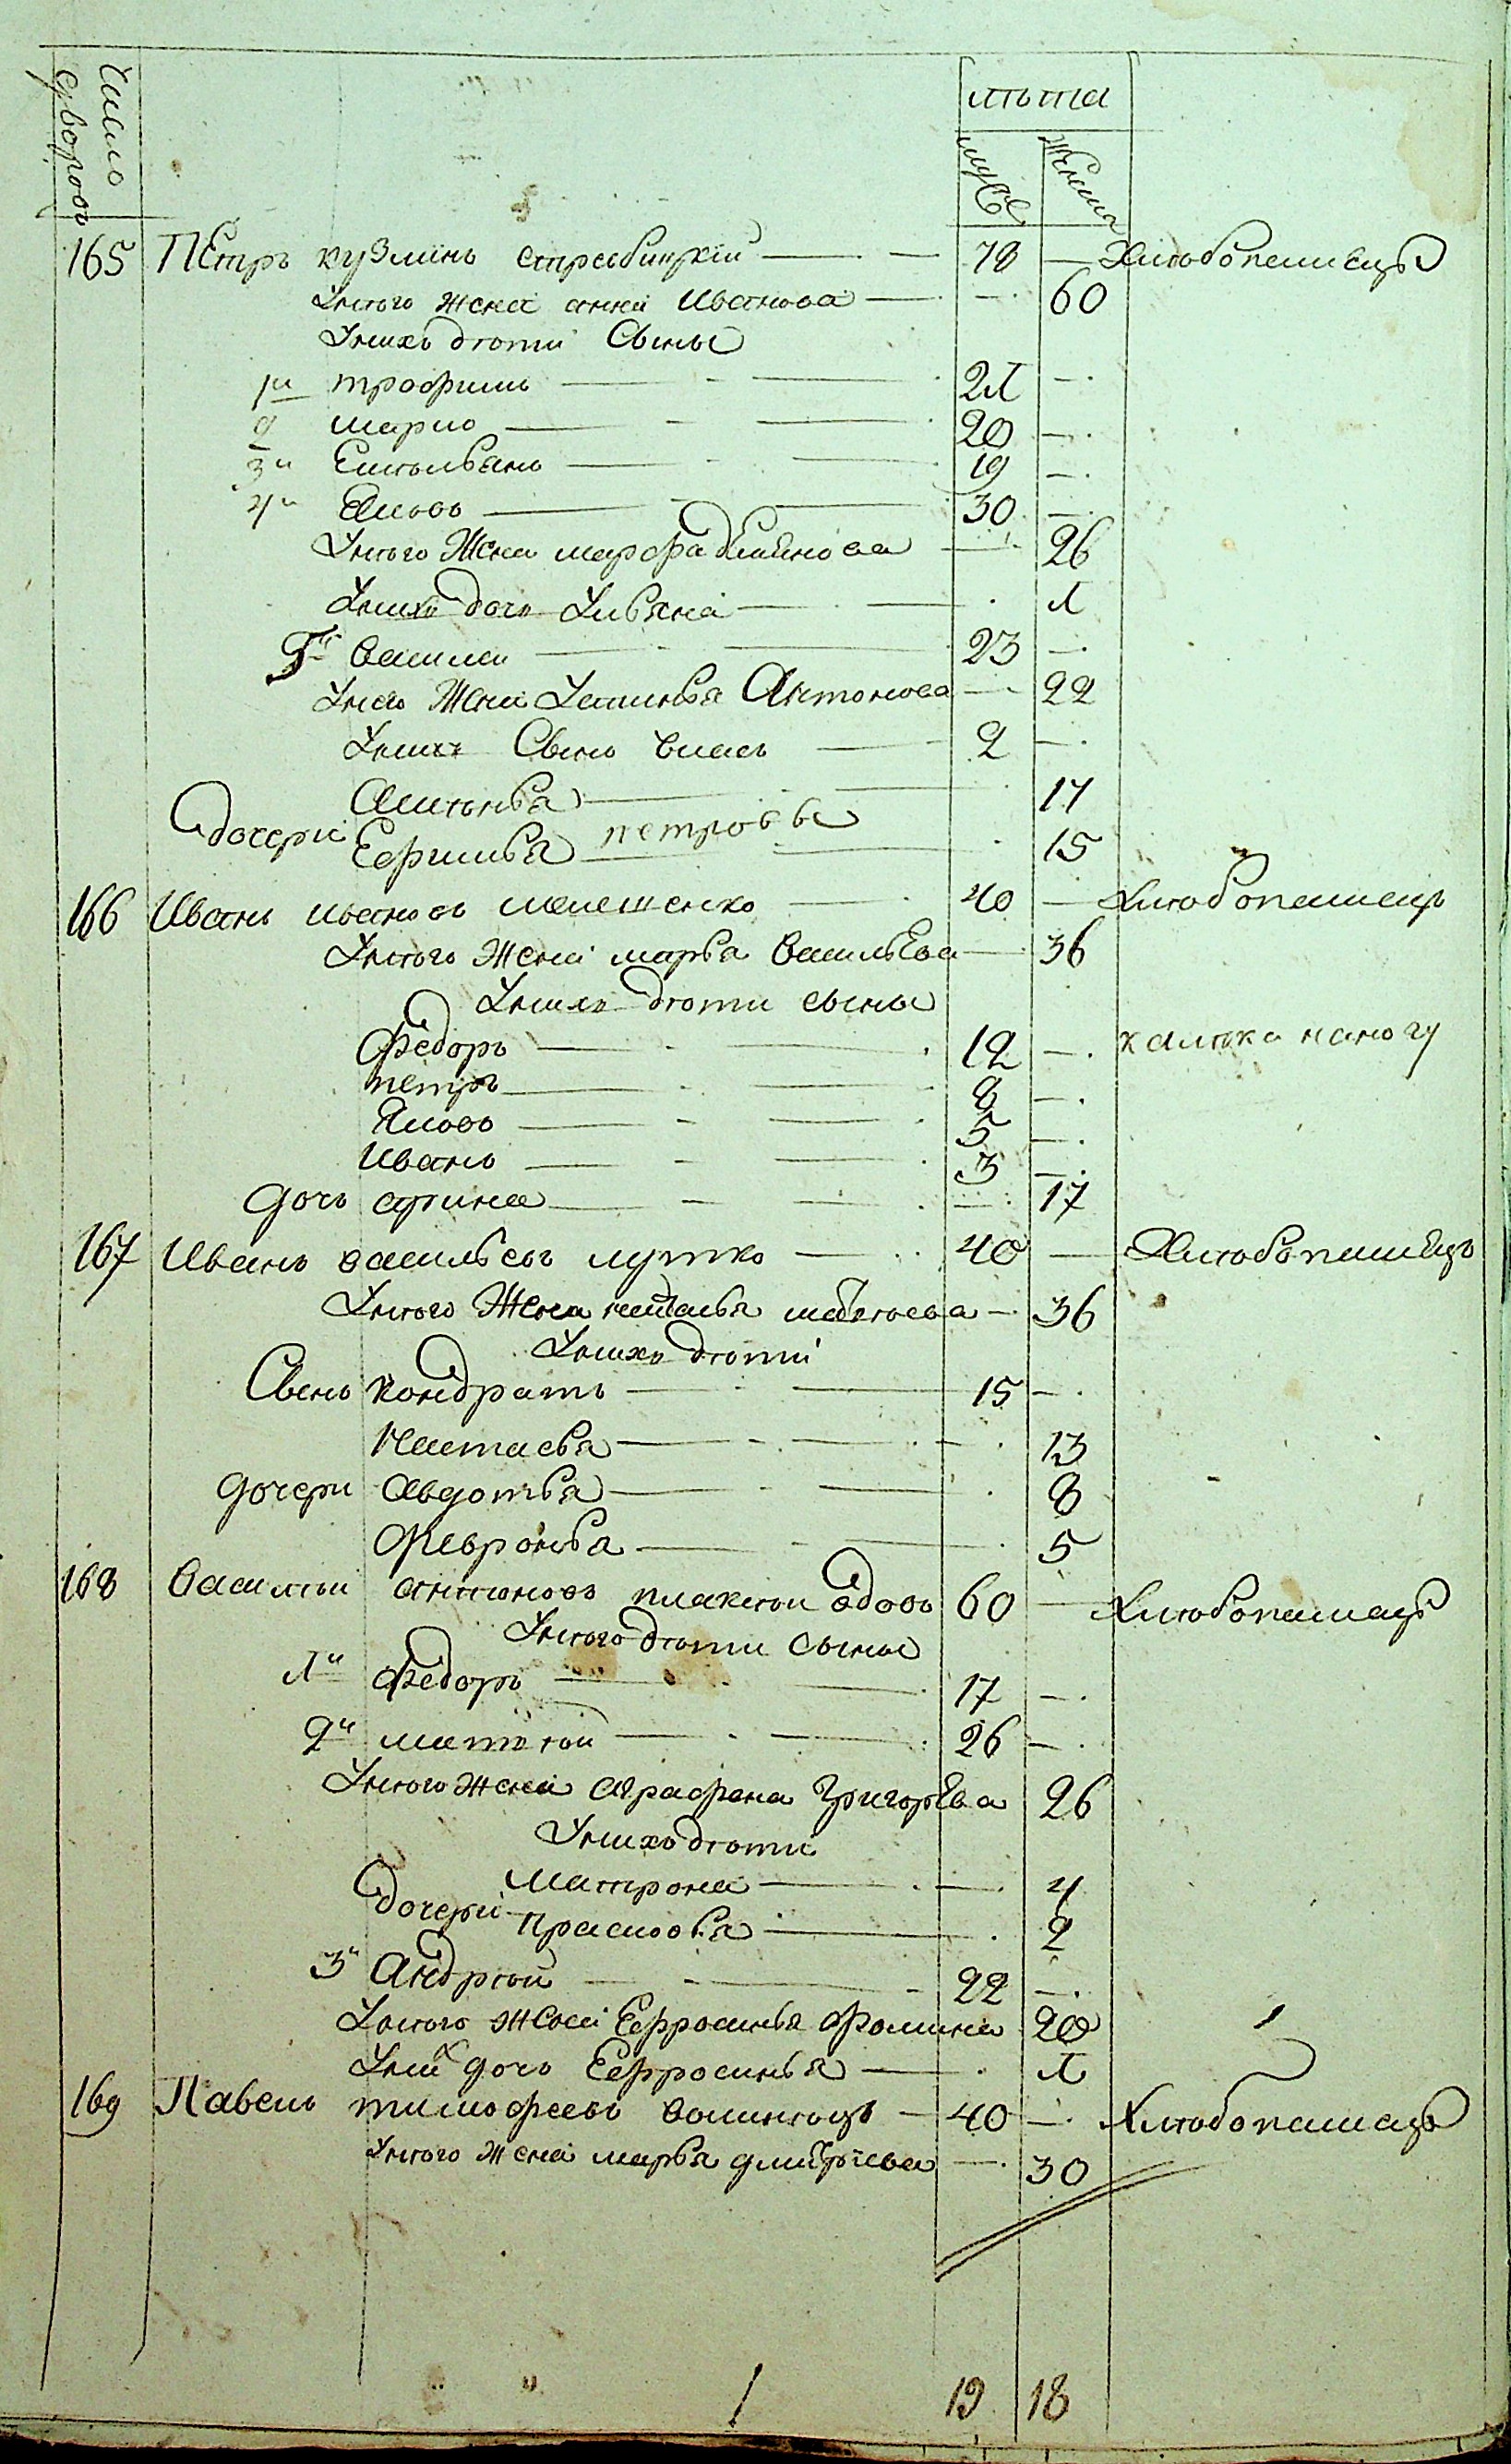 Число дворовъ
лѣта
муже
женша
165 Петръ кузминъ стребицкій — 78 — Хлѣбопашецъ
Унѣго жена анна Иванова — — 60
Унихъ дѣти Сыны
1й трофимъ — 21 —
2 марко — 20 —
3й Емельянъ — 19 —
4й Яковъ — 30 —
Унѣго Жена марфа Демянова — 26
Унихъ дочь Ульяна — 1
5й василеи — 23 —
Унего Жена Устинья Антонова — 22
Унихъ Сынъ власъ — 2 —
Аксинья — 17
дочери петровы
Ефимья — 15
166 Иванъ ивановъ мелешенко — 40 — хлѣбопашецъ
Унѣго Жена марья васильева — 36
Унихъ дѣти сыны
Федоръ — 12 — калѣка наногу
петръ — 8 —
Яковъ — 5 —
Иванъ — 3 —
дочь арина — — 17
167 Иванъ васильевъ лутко — 40 — Хлѣбопашецъ
Унѣго Жена наталья матвѣева — 36
Унихъ дѣти
Сынъ кондратъ — 15 —
Настасья — 13
дочери Авдотья — 8
Февронья — 5
168 Василѣй антоновъ плаксѣи вдовъ 60 — Хлѣбопашецъ
Унѣго дѣти сыны
1й Федоръ — 17 —
2й матвѣй — 26 —
Унѣго жена Аграфена Григорьева 26
Унихъ дѣти
Матрона — 4
дочери
прасковья — 2
3й Андрѣй — 22 —
Унѣго жена Ефросинья Фомина 20
Уних дочь Ефросинья — 1
169 Павелъ тимофеевъ — 40 — Хлѣбопашецъ
Унѣго жена марья дмитріева — 30
19 18